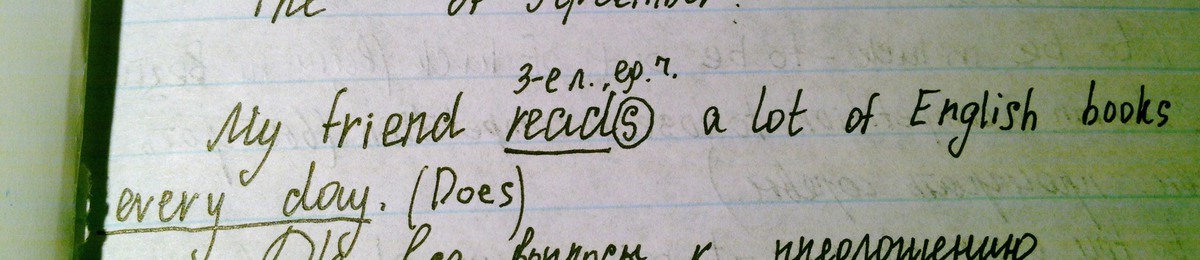 The of September.
3-е л., ед.ч.
My friend reads a lot of English books
every day. (Does)
вопросы к предложению